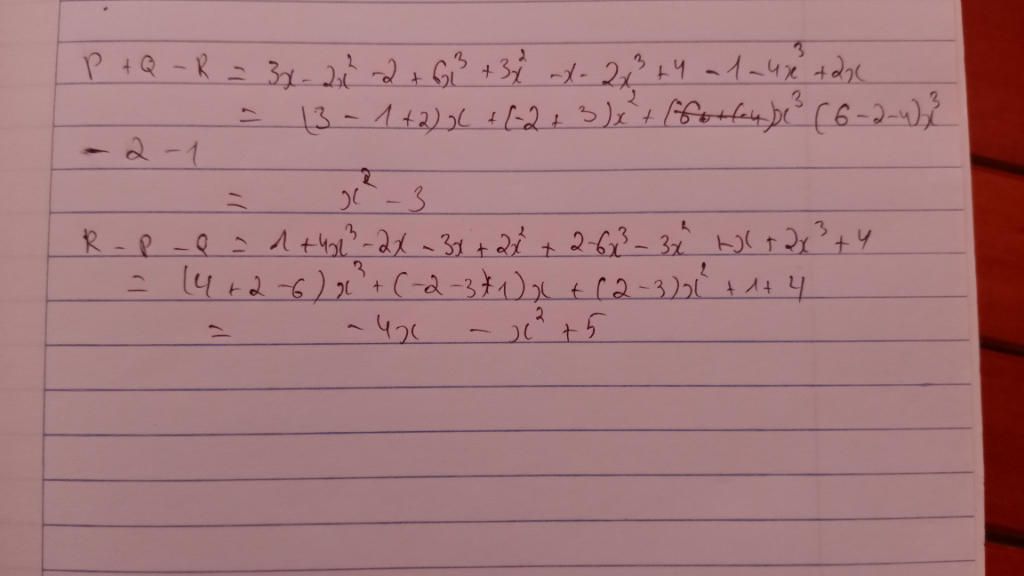 P + Q - R = 3x - 2x² - 2 + 6x³ + 3x² - x - 2x³ + 4 - 1 - 4x³ + 2x
= (3 - 1 + 2)x + (-2 + 3)x² + x³ (6 - 2 - 4)x³
- 2 - 1
= x² - 3
R - P - Q = 1 + 4x³ - 2x - 3x + 2x² + 2 - 6x³ - 3x² + x + 2x³ + 4
= (4 + 2 - 6)x³ + (-2 - 3 + 1)x + (2 - 3)x² + 1 + 4
= - 4x - x² + 5